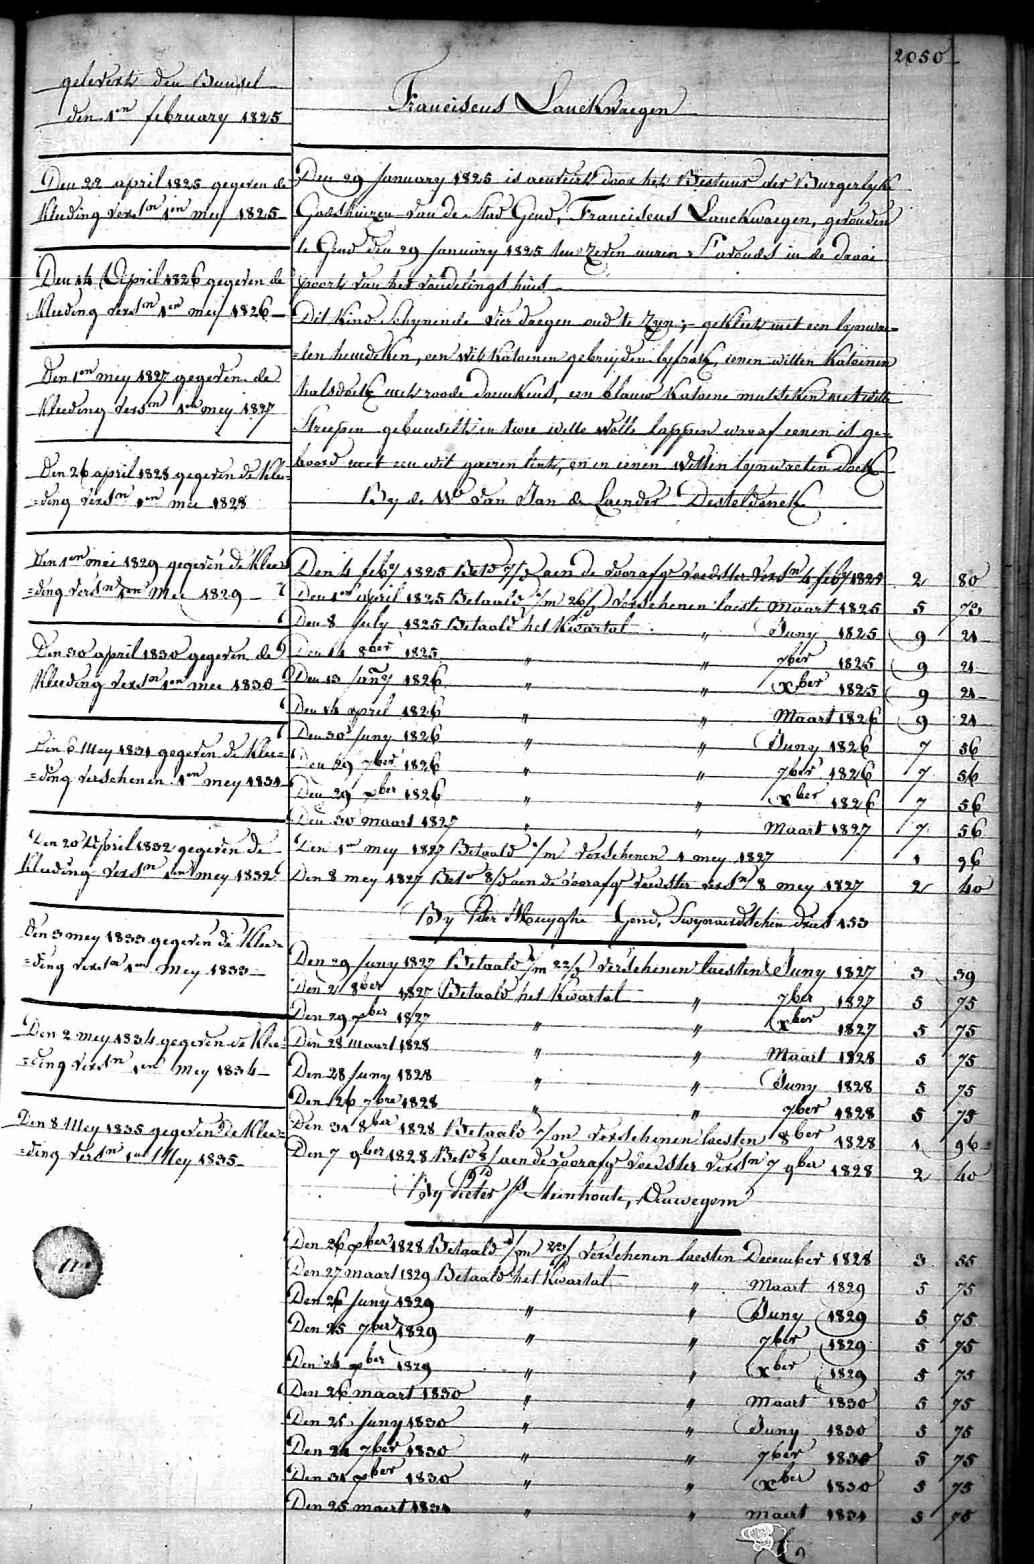 2050
gelevert den Bunsel
den 1en february 1825
Franciscus Lanckwaegen
Den 22 april 1825 gegeven de
kleeding versn 1en mey 1825
Den 14 April 1826 gegeven de
kleeding versn 1en mey 1826
Den 1en mey 1827 gegeven de
kleeding versn 1en mey 1827
Den 26 april 1828 gegeven de klee-
=ding versn 1en mei 1828
Den 1en mei 1829 gegeven de klee=
=ding versn 1en Mei 1829
Den 30 april 1830 gegeven de
kleeding versn 1en mei 1830
Den 6 Mey 1831 gegeven de klee=
=ding verschenen 1en mey 1831
Den 20 April 1832 gegeven de
kleeding versn 1en mey 1832
Den 3 mey 1833 gegeven de klee=
=ding versn 1en mey 1833
Den 2 mey 1834 gegeven de klee=
=ding versn 1en mey 1834
Den 8 Mey 1835 gegeven de klee=
=ding versn 1en Mey 1835
Den 29 January 1825 is aenveert door het Bestuur der Burgerlyke
Godshuizen van de Stad Gend, Franciscus Lanckwaegen, gevonden
te Gend den 29 January 1825 ten zeven uuren 's avonds in de draai
poort van het vondelings huis
Dit Kind schynende vier daegen oud te zyn; gekleed met een lynwae=
=ten hemdeken, een wit katoenen gebreyden lyfrok, eenen witten katoenen
halsdoek met roode , een blauw katoene mutseken met witte
streepen gebunselt in twee witte wolle lappen waraf eenen is ge=
boord met een wit gaeren lint, en in eenen witten lynwaeten doek
By de We van Jan de Laender Desteldonck
Den 4 feby 1825 Betd 7/ aen de voorafge voedster versn 4 feby 1825 2 80
Den 1en April 1825 Betaald /m 26/ verschenen laeste Maart 1825 5 73
Den 8 July 1825 Betaald het Kwartal " Juny 1825 9 21
Den 14 8ber 1825 " " 7ber 1825 9 21
Den 13 Jany 1826 " " Xber 1825 9 21
Den 14 april 1826 " " Maart 1826 9 21
Den 30 Juny 1826 " " Juny 1826 7 56
Den 29 7ber 1826 " " 7ber 1826 7 56
Den 29 xber 1826 " " Xber 1826 7 56
Den 30 maart 1827 " " Maart 1827 7 56
Den 1en mey 1827 Betaald /m verschenen 1 mey 1827 1 96
Den 8 mey 1827 Betd 8/ aen de voorafge voedster versn 8 mey 1827 2 40
By Pr Muyghe Gend, Swynaerdschen dries 153
Den 29 Juny 1827 Betaald /m 22/ verschenen laesten Juny 1827 3 39
Den 2 8ber 1827 Betaald het Kwartal " 7ber 1827 5 75
Den 29 xber 1827 " " Xber 1827 5 75
Den 28 maart 1828 " " Maart 1828 5 75
Den 28 Juny 1828 " " Juny 1828 5 75
Den 26 7bre 1828 " " 7ber 1828 5 75
Den 31 8ber 1828 Betaald /m verschenen laesten 8ber 1828 1 96
Den 7 9ber 1828 Betd 8/ aen de voorafge voedster versn 7 9ber 1828 2 40
By Pieter Steenhoute, Ouweg
Den 26 xber 1828 Betaald /m 23/ verschenen laesten December 1828 3 55
Den 27 maart 1829 Betaald het Kwartal " Maart 1829 5 75
Den 26 Juny 1829 " " Juny 1829 5 75
Den 25 7ber 1829 " " 7ber 1829 5 75
Den 24 xber 1829 " " Xber 1829 5 75
Den 26 maart 1830 " " Maart 1830 5 75
Den 25 Juny 1830 " " Juny 1830 5 75
Den 24 7ber 1830 " " 7ber 1830 5 75
Den 31 xber 1830 " " Xber 1830 5 75
Den 25 maert 1831 " " maert 1831 5 75